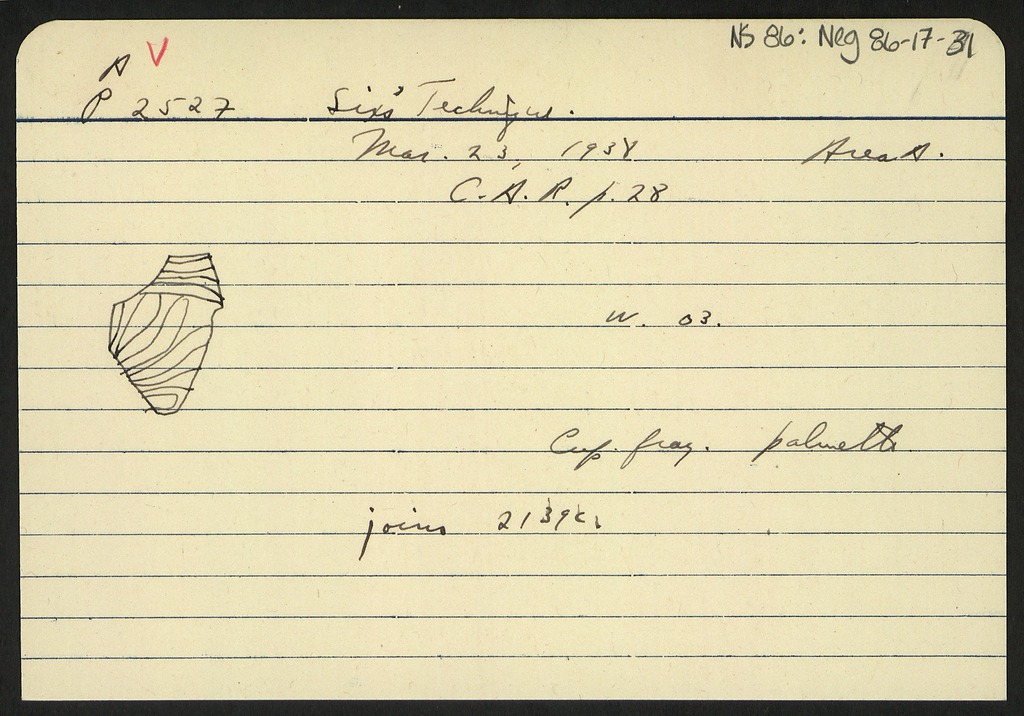 NS 86: Neg 86-17-31
A V
P 2527 Six's Technique.
Mar. 23, 1938 Area A.
C.A.R. p. 28
W. 03.
Cup. frag. palmette
joins 2139